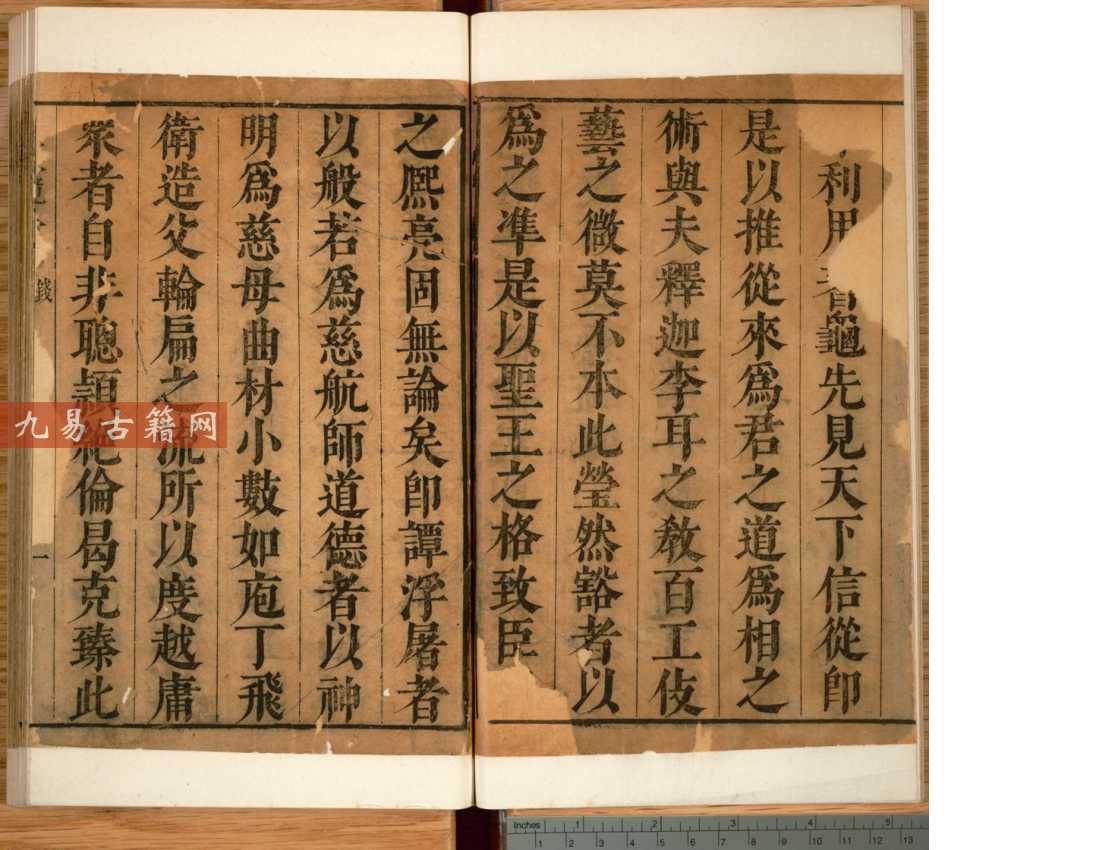 利用蓍龜先見天下信從卽
是以推從來爲君之道爲相之
術與夫釋迦李耳之敎百工伎
藝之微莫不本此瑩然豁者以
爲之準是以聖王之格致臣
之熈亮固無論矣卽譚浮屠者
以般若爲慈航師道德者以神
明爲慈母曲材小數如庖丁飛
衛造父輪扁之流所以度越庸
衆者自非聰頴絶倫曷克臻此
錢
一
九易古籍网
Inches 1 2 3 4 5
1 2 3 4 5 6 7 8 9 10 11 12 13